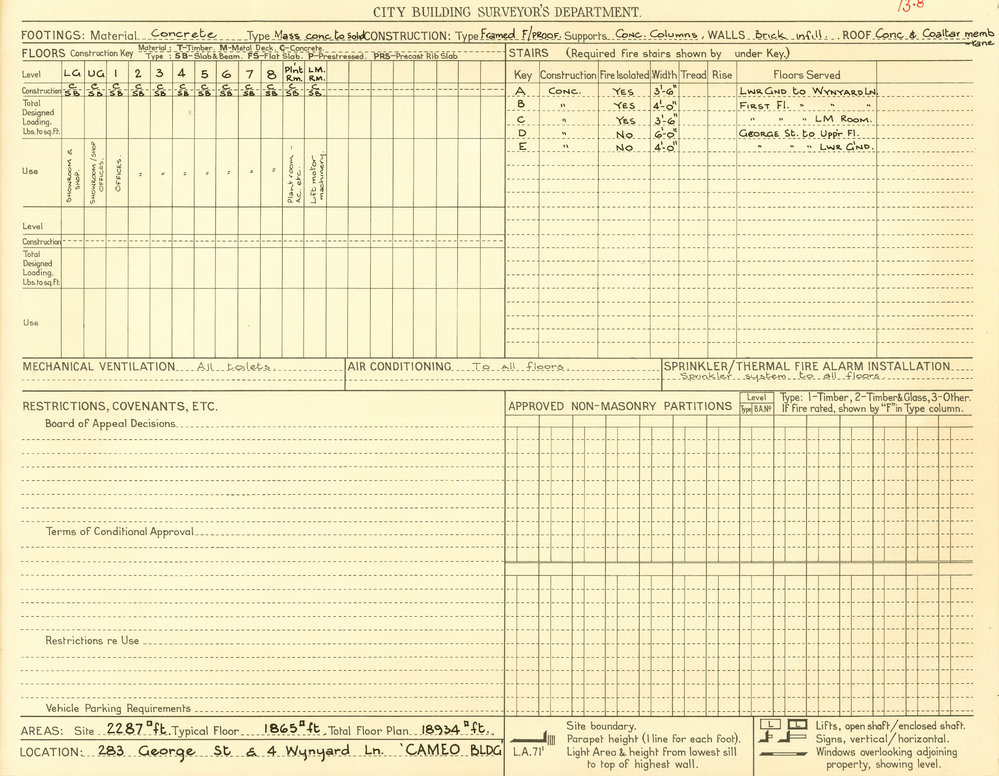 13·8
CITY BUILDING SURVEYOR'S DEPARTMENT.
FOOTINGS: Material Concrete Type Mass conc to solid CONSTRUCTION: Type Framed F/PROOF. Supports Conc. Columns. WALLS brick infill. ROOF Conc & Coaltar memb
-rane
FLOORS Construction Key Material: T-Timber, M-Metal Deck, C-Concrete.
Type: SB-Slab & Beam. FS-Flat Slab. P-Prestressed. PRS-Precast Rib Slab
STAIRS (Required Fire stairs shown by under Key.)
Level LG UG 1 2 3 4 5 6 7 8 Plnt Rm. L.M. RM.
Construction C C C C C C C C C C C C
SB SB SB SB SB SB SB SB SB SB SB SB
Total
Designed
Loading.
Lbs. to sq.ft.
Use SHOWROOM & SHOP. SHOWROOM/SHOP OFFICES. OFFICES. " " " " " " " Plant room - A.C. etc. Lift motor machinery.
Key Construction Fire Isolated Width Tread Rise Floors Served
A CONC. YES 3'-6" LWR GND to WYNYARD LN.
B " YES 4'-0" FIRST Fl. " " "
C " YES 3'-6" " " " LM ROOM.
D " NO 6'-0" GEORGE St. to Upp'r Fl.
E " NO 4'-0" " " " LWR G'ND.
Level
Construction
Total
Designed
Loading.
Lbs. to sq.ft.
Use
MECHANICAL VENTILATION All toilets.
AIR CONDITIONING To All floors.
SPRINKLER/THERMAL FIRE ALARM INSTALLATION
Sprinkler system to all floors.
RESTRICTIONS, COVENANTS, ETC.
Board of Appeal Decisions.
Terms of Conditional Approval
Restrictions re Use
Vehicle Parking Requirements
APPROVED NON-MASONRY PARTITIONS Level
Type B.A.Nº
Type: 1-Timber, 2-Timber & Glass, 3-Other.
If Fire rated, shown by "F" in Type column.
AREAS: Site 2287 □ft. Typical Floor 1865 □ft. Total Floor Plan 18934 □ft.
LOCATION: 283 George St & 4 Wynyard Ln. 'CAMEO BLDG
Site boundary.
Parapet height (1 line for each foot).
L.A.71' Light Area & height from lowest sill
to top of highest wall.
L L Lifts, open shaft/enclosed shaft.
Signs, vertical/horizontal.
Windows overlooking adjoining
property, showing level.